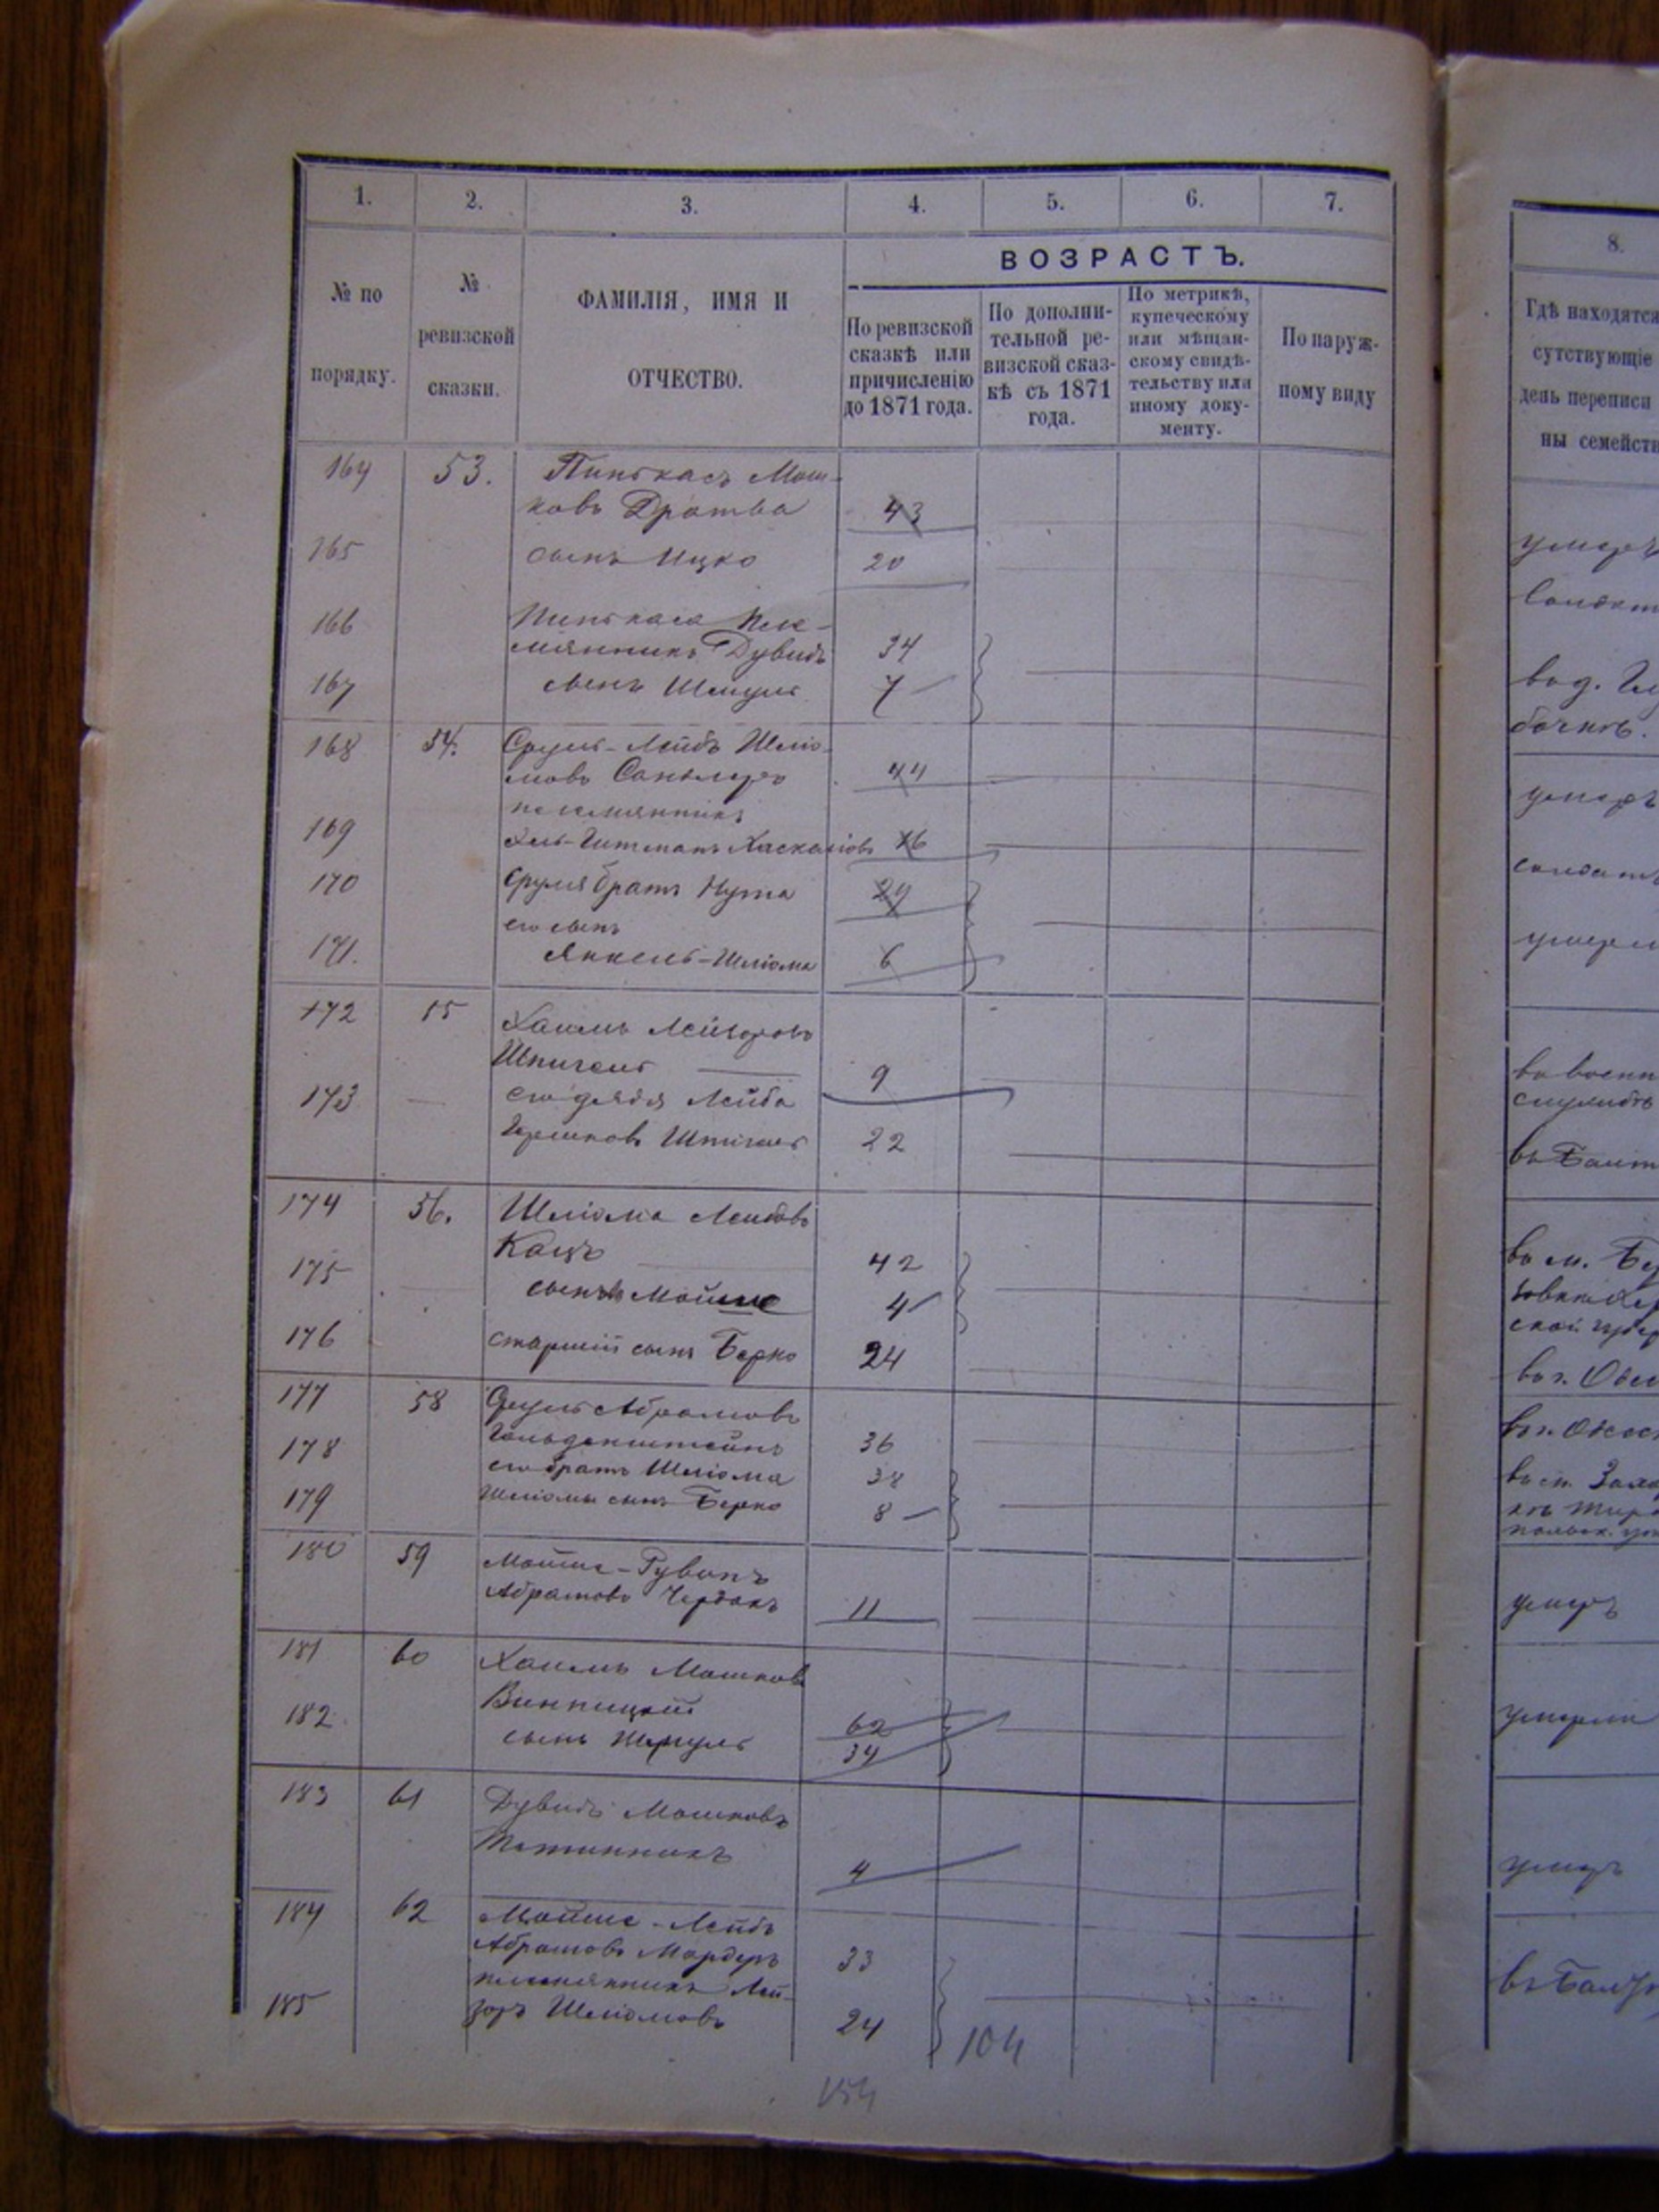 1. 2. 3. 4. 5. 6. 7.
ВОЗРАСТЪ.
№ по порядку.
№ ревизской сказки.
ФАМИЛІЯ, ИМЯ И ОТЧЕСТВО.
По ревизской сказкѣ или причисленію до 1871 года.
По дополнительной ревизской сказкѣ съ 1871 года.
По метрикѣ, купеческому или мѣщанскому свидѣтельству или иному документу.
По наружному виду
164 53. Пинькасъ Мош-
ковъ Дратва 43
165 сынъ Ицко 20
166 Пинькаса пле-
мянникъ Дувидъ 34
167 сынъ Шмуль 7
168 54. Сруль-Лейбъ Шліо-
мовъ 44
племянникъ
169 Хаскаліовъ 16
170 Сруля братъ Нута 29
его сынъ
171. Янкель-Шліома 6
172 55 Хаимъ Лейзоровъ
Шпигель 9
173 его дядя Лейба
Гершковъ Шпигель 22
174 56. Шліома Лейбовъ
Кацъ 42
175 сынъ Мойше 4
176 старшій сынъ Берко 24
177 58 Сруль Абрамовъ
Гольденштейнъ 36
178 его братъ Шліома 38
179 Шліомы сынъ Берко 8
180 59 Мойше-Рувинъ
Абрамовъ Чердакъ 11
181 60 Хаимъ Мошковъ
Винницкій 62
182 сынъ Шмуль 34
183 61 Дувидъ Мошковъ
4
184 62 Мойше-Лейбъ
Абрамовъ Мардеръ 33
племянникъ Лей-
185 зоръ Шліомовъ 24
104
154
8.
Гдѣ находятся
сутствующіе
день переписи
ны семейств
умеръ
вод.
умеръ
солдатъ
умерли
въ военн
службѣ
въ Балт
въ м.
въ г. Одес
въ г. Одесс
умеръ
умерли
умеръ
въ Балт